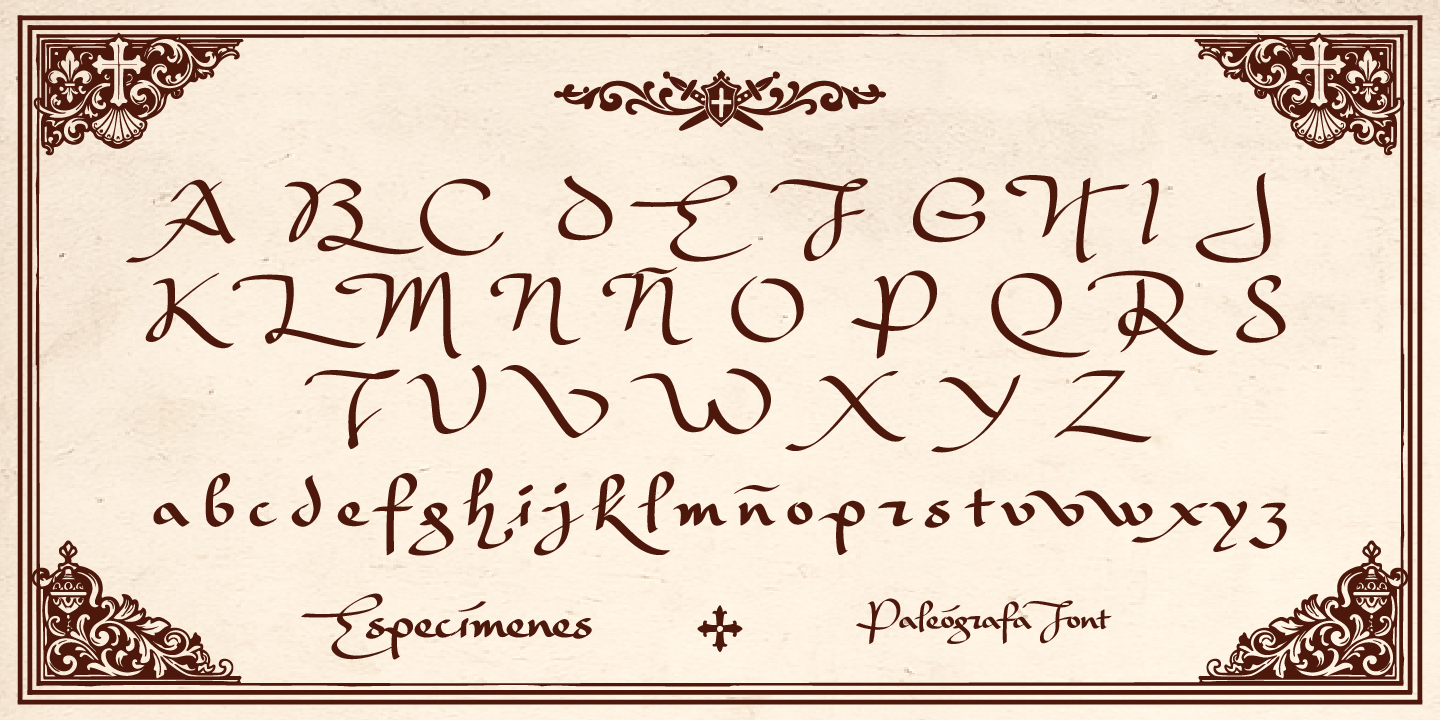 A B C D E F G H I J
K L M N Ñ O P Q R S
T U V W X Y Z
a b c d e f g h i j k l m ñ o p r s t u v w x y z
Especímenes Paleógrafa Font